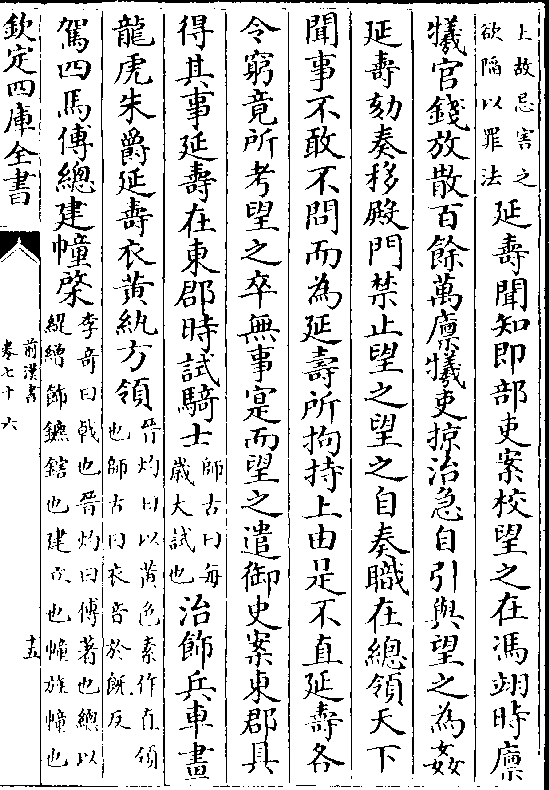 上故忌害之
欲陷以罪法
延壽聞知即部吏案校望之在馮翊時廩
犧官錢放散百餘萬廩犧吏掠治急自引與望之為姦
延壽劾奏移殿門禁止望之望之自奏職在總領天下
聞事不敢不問而為延壽所拘持上由是不直延壽各
令窮竟所考望之卒無事寔而望之遣御史案東郡具
得其事延壽在東郡時試騎士
師古曰每
歲大試也
治飾兵車畫
龍虎朱爵延壽衣黃紈方領
晉灼曰以黃色素作直領
也師古曰衣音於既反
駕四馬傅總建幢棨
李奇曰戟也晉灼曰傅著也總以
緹繒飾鑣鎋也建立也幢旌幢也
欽定四庫全書
前漢書
卷七十六
十五